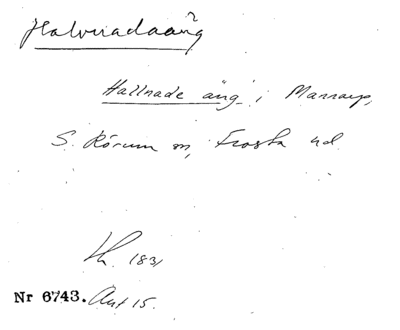 Halvnadaäng
Hallnade äng i Mannarp,
S. Rörum sn, Frosta hd
Lh. 1831
Nr 6743. Ant 15.